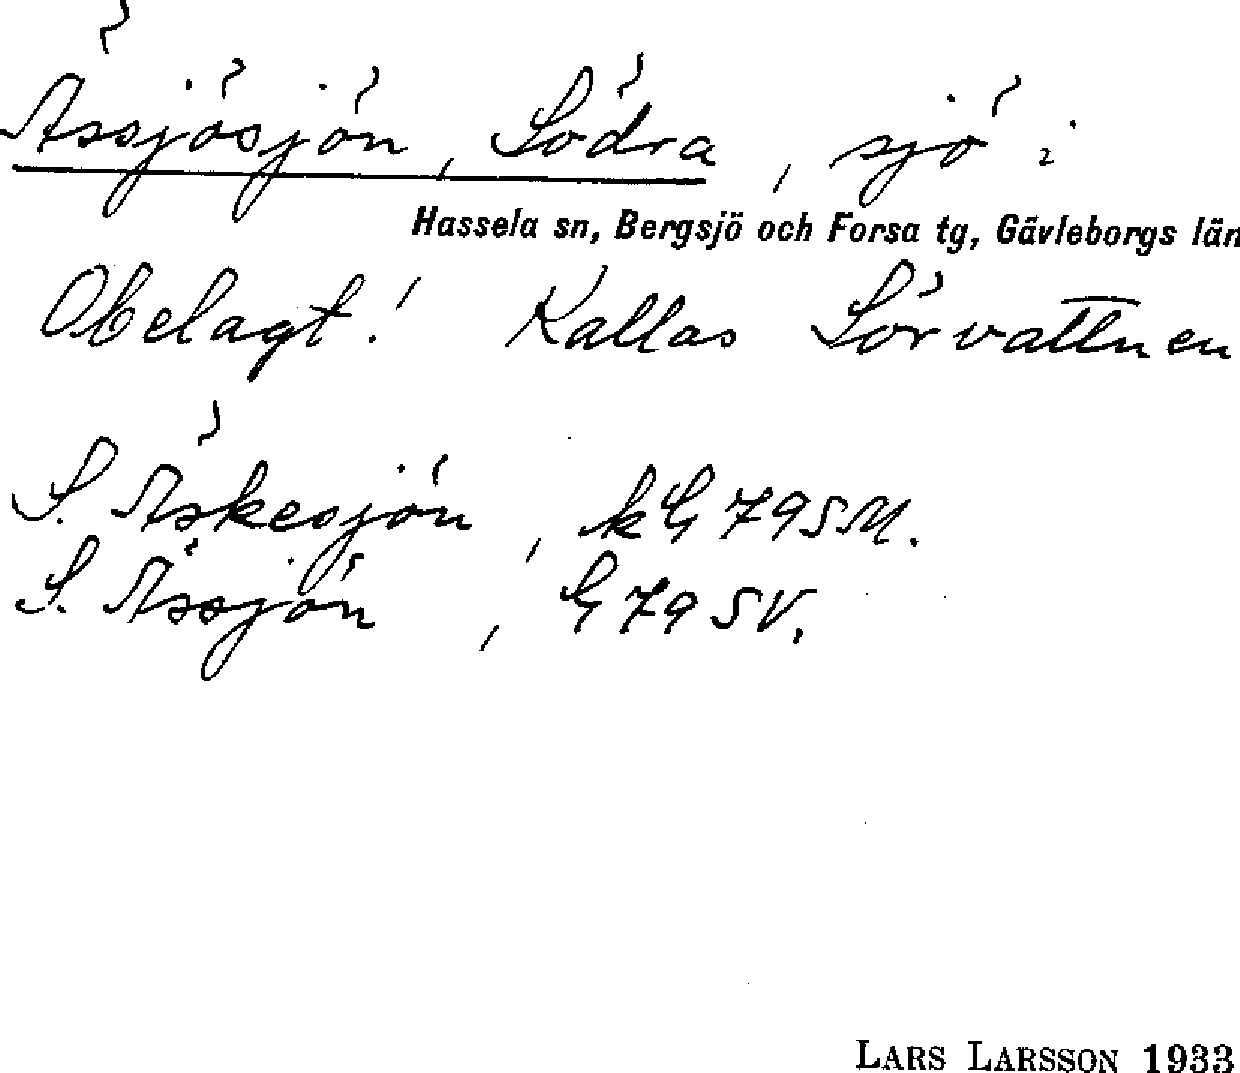 Ässjösjön, Södra, sjö i
Hassela sn, Bergsjö och Forsa tg, Gävleborgs län
Obelagt! Kallas Sörvattnen
S. Äskesjön, kG 79 SM.
S. Ässjön, G 79 SV.
LARS LARSSON 1933